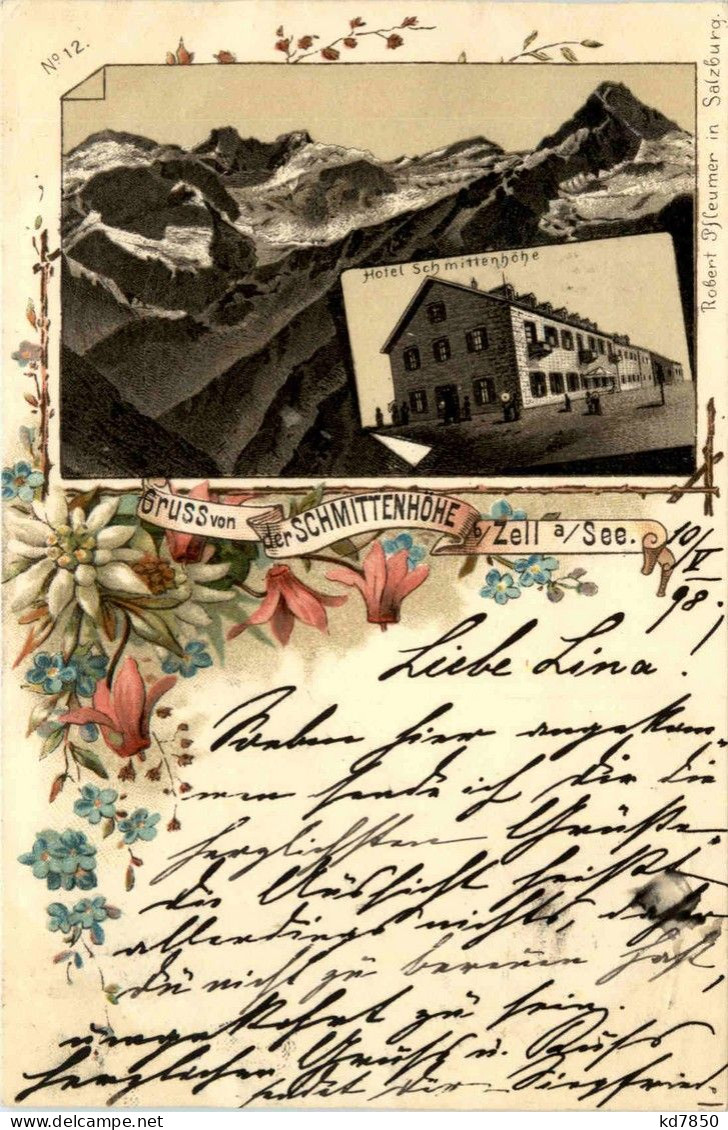 No 12.
Robert Pfleumer in Salzburg.
Hotel Schmittenhöhe
Gruss von der SCHMITTENHÖHE b/ Zell a/See.
10/V 98!
Liebe Lina!
Soeben hier angekom-
men sende ich Dir die
herzlichsten Grüße.
die Aussicht heißt
allerdings nichts, daher
du nicht zu bereuen hast,
umgekehrt zu sein.
herzlicher Gruß u. Kuß
sendet Dir Siegfried.
kd7850